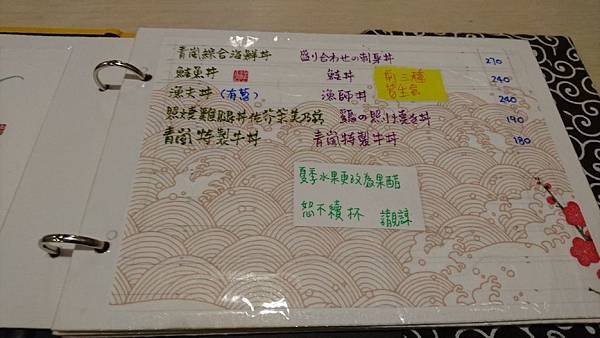 青崗綜合海鮮丼 盛り合わせの刺身丼 270
鮭魚丼 鮭丼 240
前三種
皆生食
漁夫丼(有蔥) 漁師丼 240
照燒雞腿丼佐芥茉美乃滋 鶏の照り焼き丼 190
青崗特製牛丼 青崗特製牛丼 180
夏季水果更改為果醋
恕不續杯 請見諒